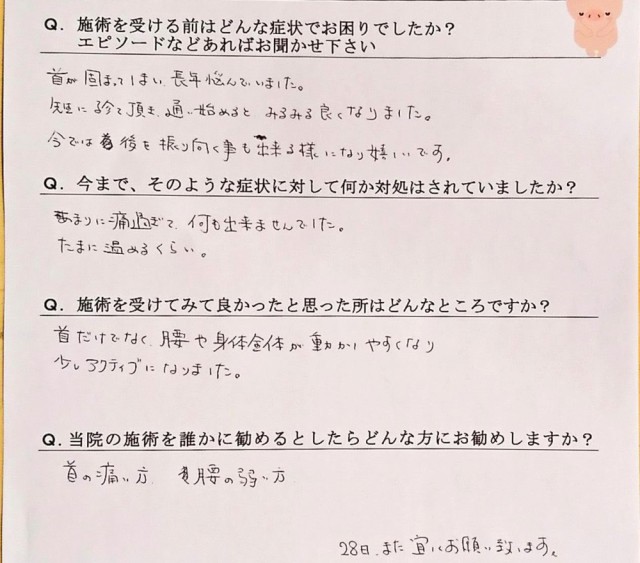 Q. 施術を受ける前はどんな症状でお困りでしたか？
エピソードなどあればお聞かせ下さい
首が固まってしまい、長年悩んでいました。
先生に診て頂き、通い始めると みるみる良くなりました。
今では 後を振り向く事も出来る様になり嬉しいです。
Q. 今まで、そのような症状に対して何か対処はされていましたか？
あまりに痛過ぎて、何も出来ませんでした。
たまに温めるくらい。
Q. 施術を受けてみて良かったと思った所はどんなところですか？
首だけでなく、腰や身体全体が動かしやすくなり
少しアクティブになりました。
Q. 当院の施術を誰かに勧めるとしたらどんな方にお勧めしますか？
首の痛い方、 腰の弱い方
28日、また宜しくお願い致します。